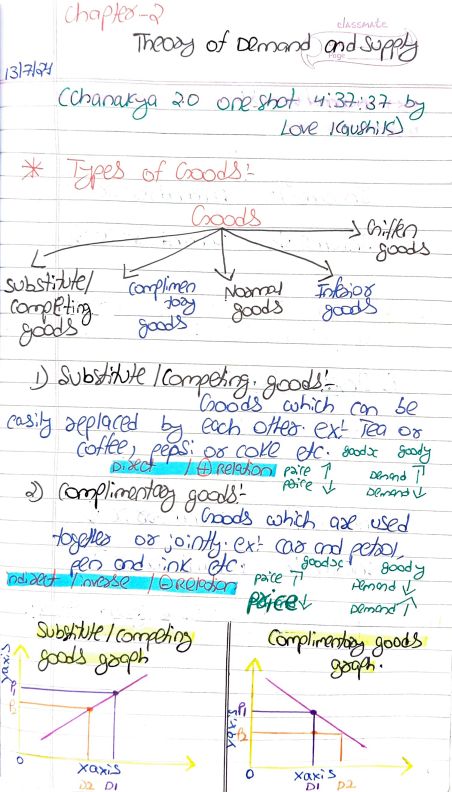 Chapter-2
classmate
Page
Theory of Demand and Supply
13/7/24
(Chanakya 2.0 one-shot 4:37:37 by
Love Kaushik)
* Types of Goods:-
Goods
Giffen
goods
Substitute/
competing
goods
Complimen
tory
goods
Normal
goods
Inferior
goods
1) Substitute / Competing goods:-
Goods which can be
easily replaced by each other. ex:- Tea or
coffee, pepsi or coke etc.
Direct / ⊕ relation
good x good y
price ↑ Demand ↑
price ↓ Demand ↓
2) Complimentory goods:-
Goods which are used
together or jointly. ex:- car and petrol,
pen and ink etc.
ndirect / inverse / ⊖ relation
good x good y
price ↑ Demand ↓
price ↓ Demand ↑
Substitute / competing
goods graph
yaxis
P1
P2
0
xaxis
D2 D1
Complimentory goods
graph.
yaxis
P1
P2
0
xaxis
D1 D2